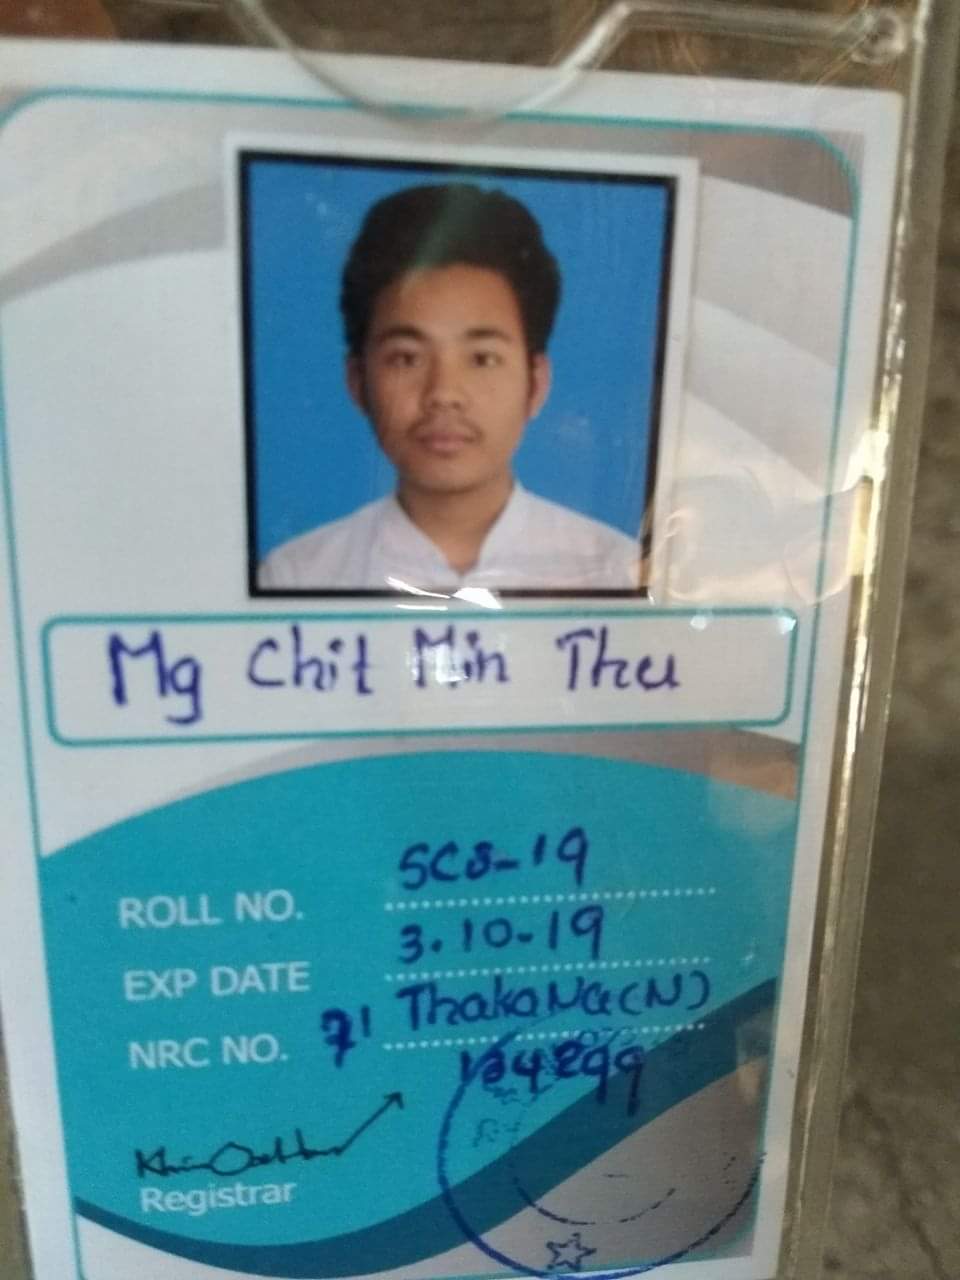 Mg Chit Min Thu
ROLL NO. 5CS-19
EXP DATE 3.10-19
NRC NO. 7/ ThakaNa(N)
Registrar